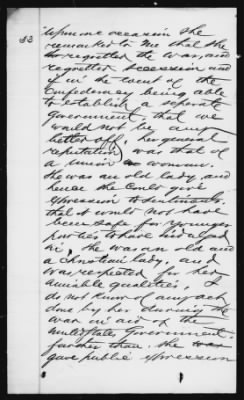 53
Upon one occasion she
remarked to me that she
regretted the war, and
regretted secession, and
if in the event of the
Confederacy being able
to establish a separate
Government, that we
would not be any
better off, her general
reputation was that of
a union woman.
She was an old lady, and
hence she could give
expression to sentiments,
that it would not have
been safe for younger
parties to have indulged
in, she was an old and
a Christian lady, and
was respected for her
amiable qualities, I
do not know of any act
done by her during the
war in aid of the
United States Government,
further than she
gave public expression